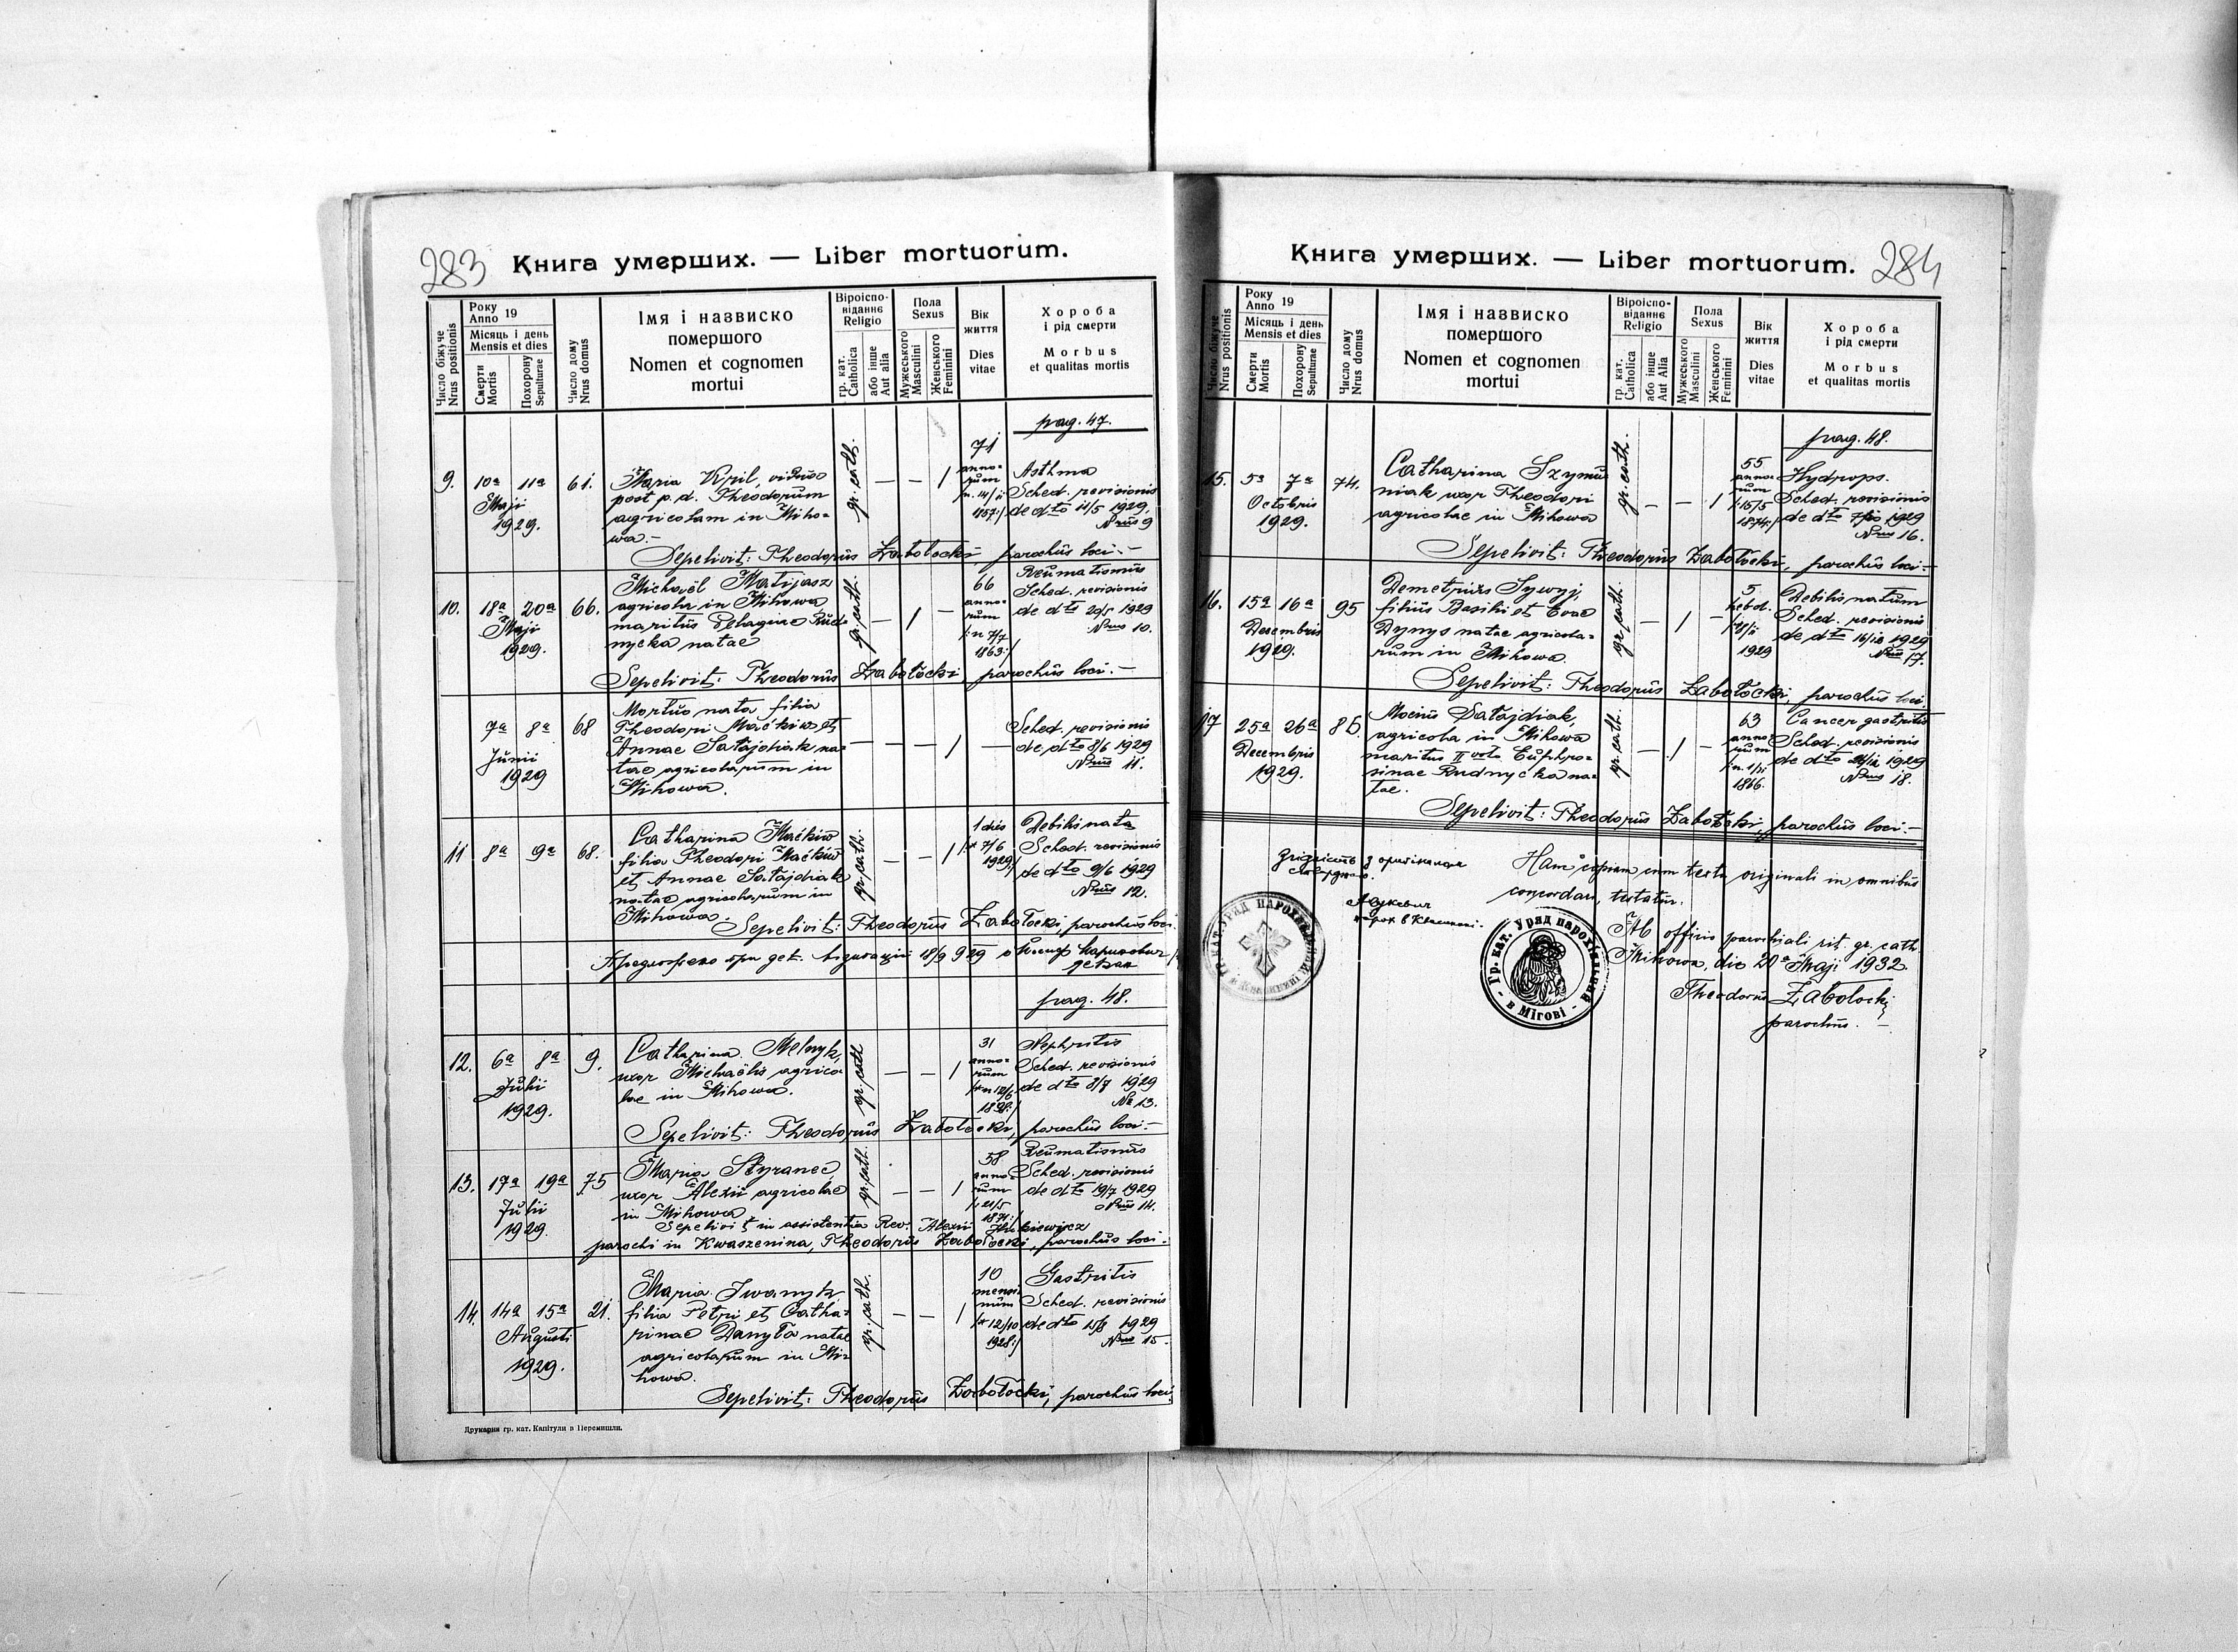 283
Книга умерших. — Liber mortuorum.
Число біжуче
Nrus positionis
Року
Anno 19
Місяць і день
Mensis et dies
Смерти
Mortis
Похорону
Sepulturae
Число дому
Nrus domus
Імя і назвиско
помершого
Nomen et cognomen
mortui
Віроіспо-
віданнє
Religio
гр. кат.
Catholica
або інше
Aut alia
Пола
Sexus
Мужеського
Masculini
Женського
Feminini
Вік
життя
Dies
vitae
Хороба
і рід смерти
Morbus
et qualitas mortis
pag. 47.
9. 10a 11a 61. Maria Kril, vidua
post p. d. Theodorum
agricolam in Miho=
wa.-
Maji
1929.
gr. cath. — — /
71
anno=
rum
Asthma
Sched. revisionis
de dto 11/5 1929,
Nrus 9
Sepelivit: Theodorus Zabołocki, parochus loci.-
10. 18a 20a 66. Michaël Matijasz
agricola in Mihowa
maritus Pelagiae Rud=
nycka natae
Maji
1929.
gr. cath. — / —
66
anno=
rum
/:n 7/7
1863:/
Reumatismus
Sched. revisionis
de dto 20/5 1929
Nrus 10.
Sepelivit: Theodorus Zabołocki parochus loci.-
7a 8a 68 Mortuo nata filia
Theodori Maćkiw et
Annae Satajdiak na=
tae agricolarum in
Mihowa.
Junii
1929
— — — / —
Sched. revisionis
de dto 8/6 1929
Nrus 11.
11 8a 9a 68. Catharina Maćkiw
filia Theodori Maćkiw
et Annae Satajdiak
natae agricolarum in
Mihowa.
gr. cath. — — /
1 dies
/:* 7/6
1929:/
Debilis nata
Sched. revisionis
de dto 9/6 1929
Nrus 12.
Sepelivit: Theodorus Zabołocki, parochus loci.
декан
pag. 48.
12. 6a 8a 9. Catharina Melnyk,
uxor Michaëlis agrico=
lae in Mihowa.
Julii
1929.
gr. cath — — /
31
anno=
rum
Nephritis
Sched. revisionis
de dto 8/7 1929
No 13.
Sepelivit: Theodorus Zabołocki, parochus loci.-
13. 17a 19a 75 Maria Styranec,
uxor Alexii agricolae
in Mihowa
Julii
1929.
gr. cath. — — /
58
anno=
rum
/: 21/5
1871:/
Reumatismus
Sched. revisionis
de dto 19/7 1929
Nrus 14.
Sepelivit in assistentia Rev. Alexii
parochi in Kwaszenina, Theodorus Zabołocki, parochus loci.-
14. 14a 15a 21. Maria Iwanyk
filia Petri et Catha=
rinae Danyła natae
agricolarum in Mi=
howa.
Augusti
1929.
gr. cath. — — /
10
mensi
num
/:* 12/10
1928:/
Gastritis
Sched. revisionis
de dto 15/8 1929
Nrus 15.
Sepelivit: Theodorus Zabołocki, parochus loci.
Друкарня гр. кат. Капітули в Перемишли.
Книга умерших. — Liber mortuorum.
284
Число біжуче
Nrus positionis
Року
Anno 19
Місяць і день
Mensis et dies
Смерти
Mortis
Похорону
Sepulturae
Число дому
Nrus domus
Імя і назвиско
помершого
Nomen et cognomen
mortui
Віроіспо-
віданнє
Religio
гр. кат.
Catholica
або інше
Aut Alia
Пола
Sexus
Мужеського
Masculini
Женського
Feminini
Вік
життя
Dies
vitae
Хороба
і рід смерти
Morbus
et qualitas mortis
pag. 48.
15. 5a 7a 74. Catharina Szymu
niak uxor Theodori
agricolae in Mihowa
Octobris
1929.
gr. cath. — — /
55
anno=
rum
/:15/5
1874:/
Hydrops.
Sched. revisionis
de dto 7/10 1929
Nrus 16.
Sepelivit: Theodorus Zabołocki, parochus loci.-
16. 15a 16a 95 Demetrius Sywyj,
filius Basilii et Evae
Dynys natae agricola=
rum in Mihowa.
Decembris
1929.
gr. cath. — / —
5
hebd.
1929
Debilis natum
Sched. revisionis
de dto 16/12 1929
Nrus 17.
Sepelivit: Theodorus Zabołocki, parochus loci
17 25a 26a 85. Satajdiak,
agricola in Mihowa
maritus II voto Euphro=
sinae Rudnyćka na=
tae.
Decembris
1929.
gr. cath. — / —
63
anno=
rum
1866.
Cancer gastritis
Sched. revisionis
de dto 26/12 1929
Nrus 18.
Sepelivit: Theodorus Zabołocki, parochus loci.-
Згідність з оригіналом
Hanc copiam cum textu originali in omnibus
concordare, testatur.
Гр. кат. Уряд парохіяльний
- в Мігові -
Ab officio parochiali rit. gr. cath.
Mihowa, die 20a Maji 1932.
Theodorus Zabołocki
parochus. -